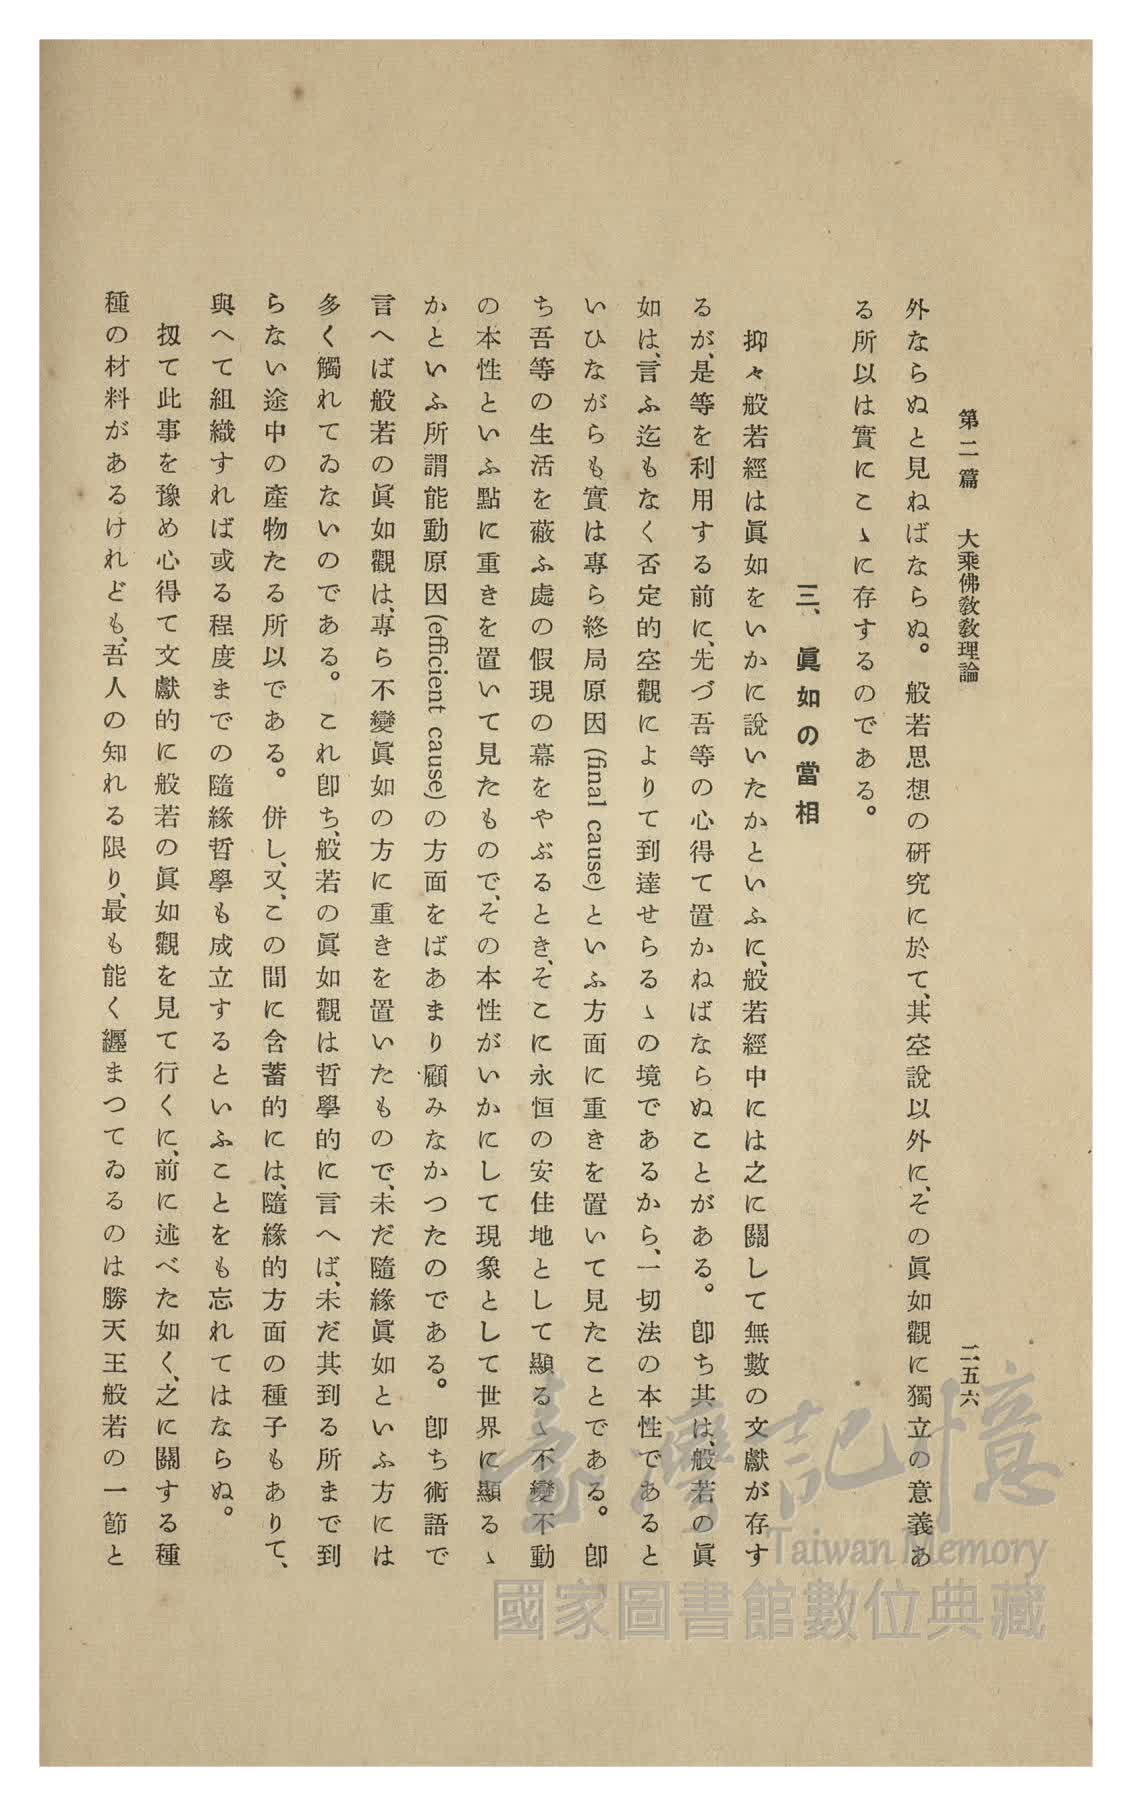 第二篇　大乘佛敎敎理論
二五六
外ならぬと見ねばならぬ。般若思想の硏究に於て、其空說以外に、その眞如觀に獨立の意義あ
る所以は實にこゝに存するのである。
三、眞如の當相
抑々般若經は眞如をいかに說いたかといふに、般若經中には之に關して無數の文獻が存す
るが、是等を利用する前に、先づ吾等の心得て置かねばならぬことがある。卽ち其は、般若の眞
如は、言ふ迄もなく否定的空觀によりて到達せらるゝの境であるから、一切法の本性であると
いひながらも實は專ら終局原因(final cause)といふ方面に重きを置いて見たことである。卽
ち吾等の生活を蔽ふ處の假現の幕をやぶるとき、そこに永恒の安住地として顯るゝ不變不動
の本性といふ點に重きを置いて見たもので、その本性がいかにして現象として世界に顯るゝ
かといふ所謂能動原因(efficient cause)の方面をばあまり顧みなかつたのである。卽ち術語で
言へば般若の眞如觀は、專ら不變眞如の方に重きを置いたもので、未だ隨緣眞如といふ方には
多く觸れてゐないのである。これ卽ち、般若の眞如觀は哲學的に言へば、未だ其到る所まで到
らない途中の產物たる所以である。併し、又、この間に含蓄的には、隨緣的方面の種子もありて、
與へて組織すれば或る程度までの隨緣哲學も成立するといふことをも忘れてはならぬ。
扨て此事を豫め心得て文獻的に般若の眞如觀を見て行くに、前に述べた如く、之に關する種
種の材料があるけれども、吾人の知れる限り、最も能く纒まつてゐるのは勝天王般若の一節と
臺灣記憶
Taiwan Memory
國家圖書館數位典藏